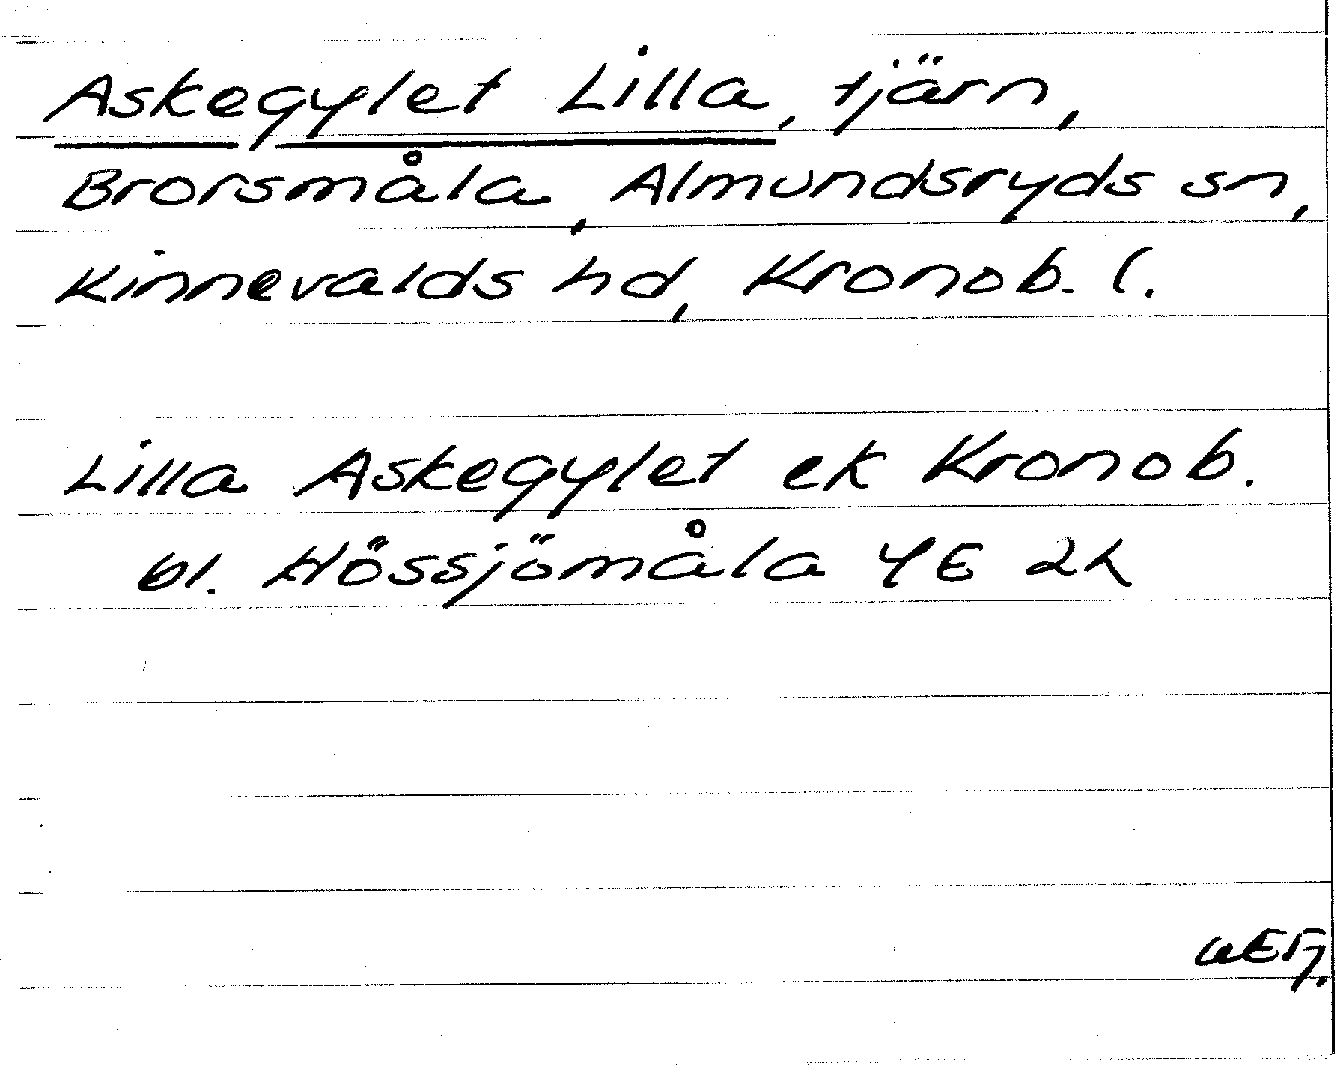 Askegylet Lilla, tjärn,
Brorsmåla, Almundsryds sn,
Kinnevalds hd, Kronob. l.
Lilla Askegylet ek Kronob.
bl. Hössjömåla 4E 2h